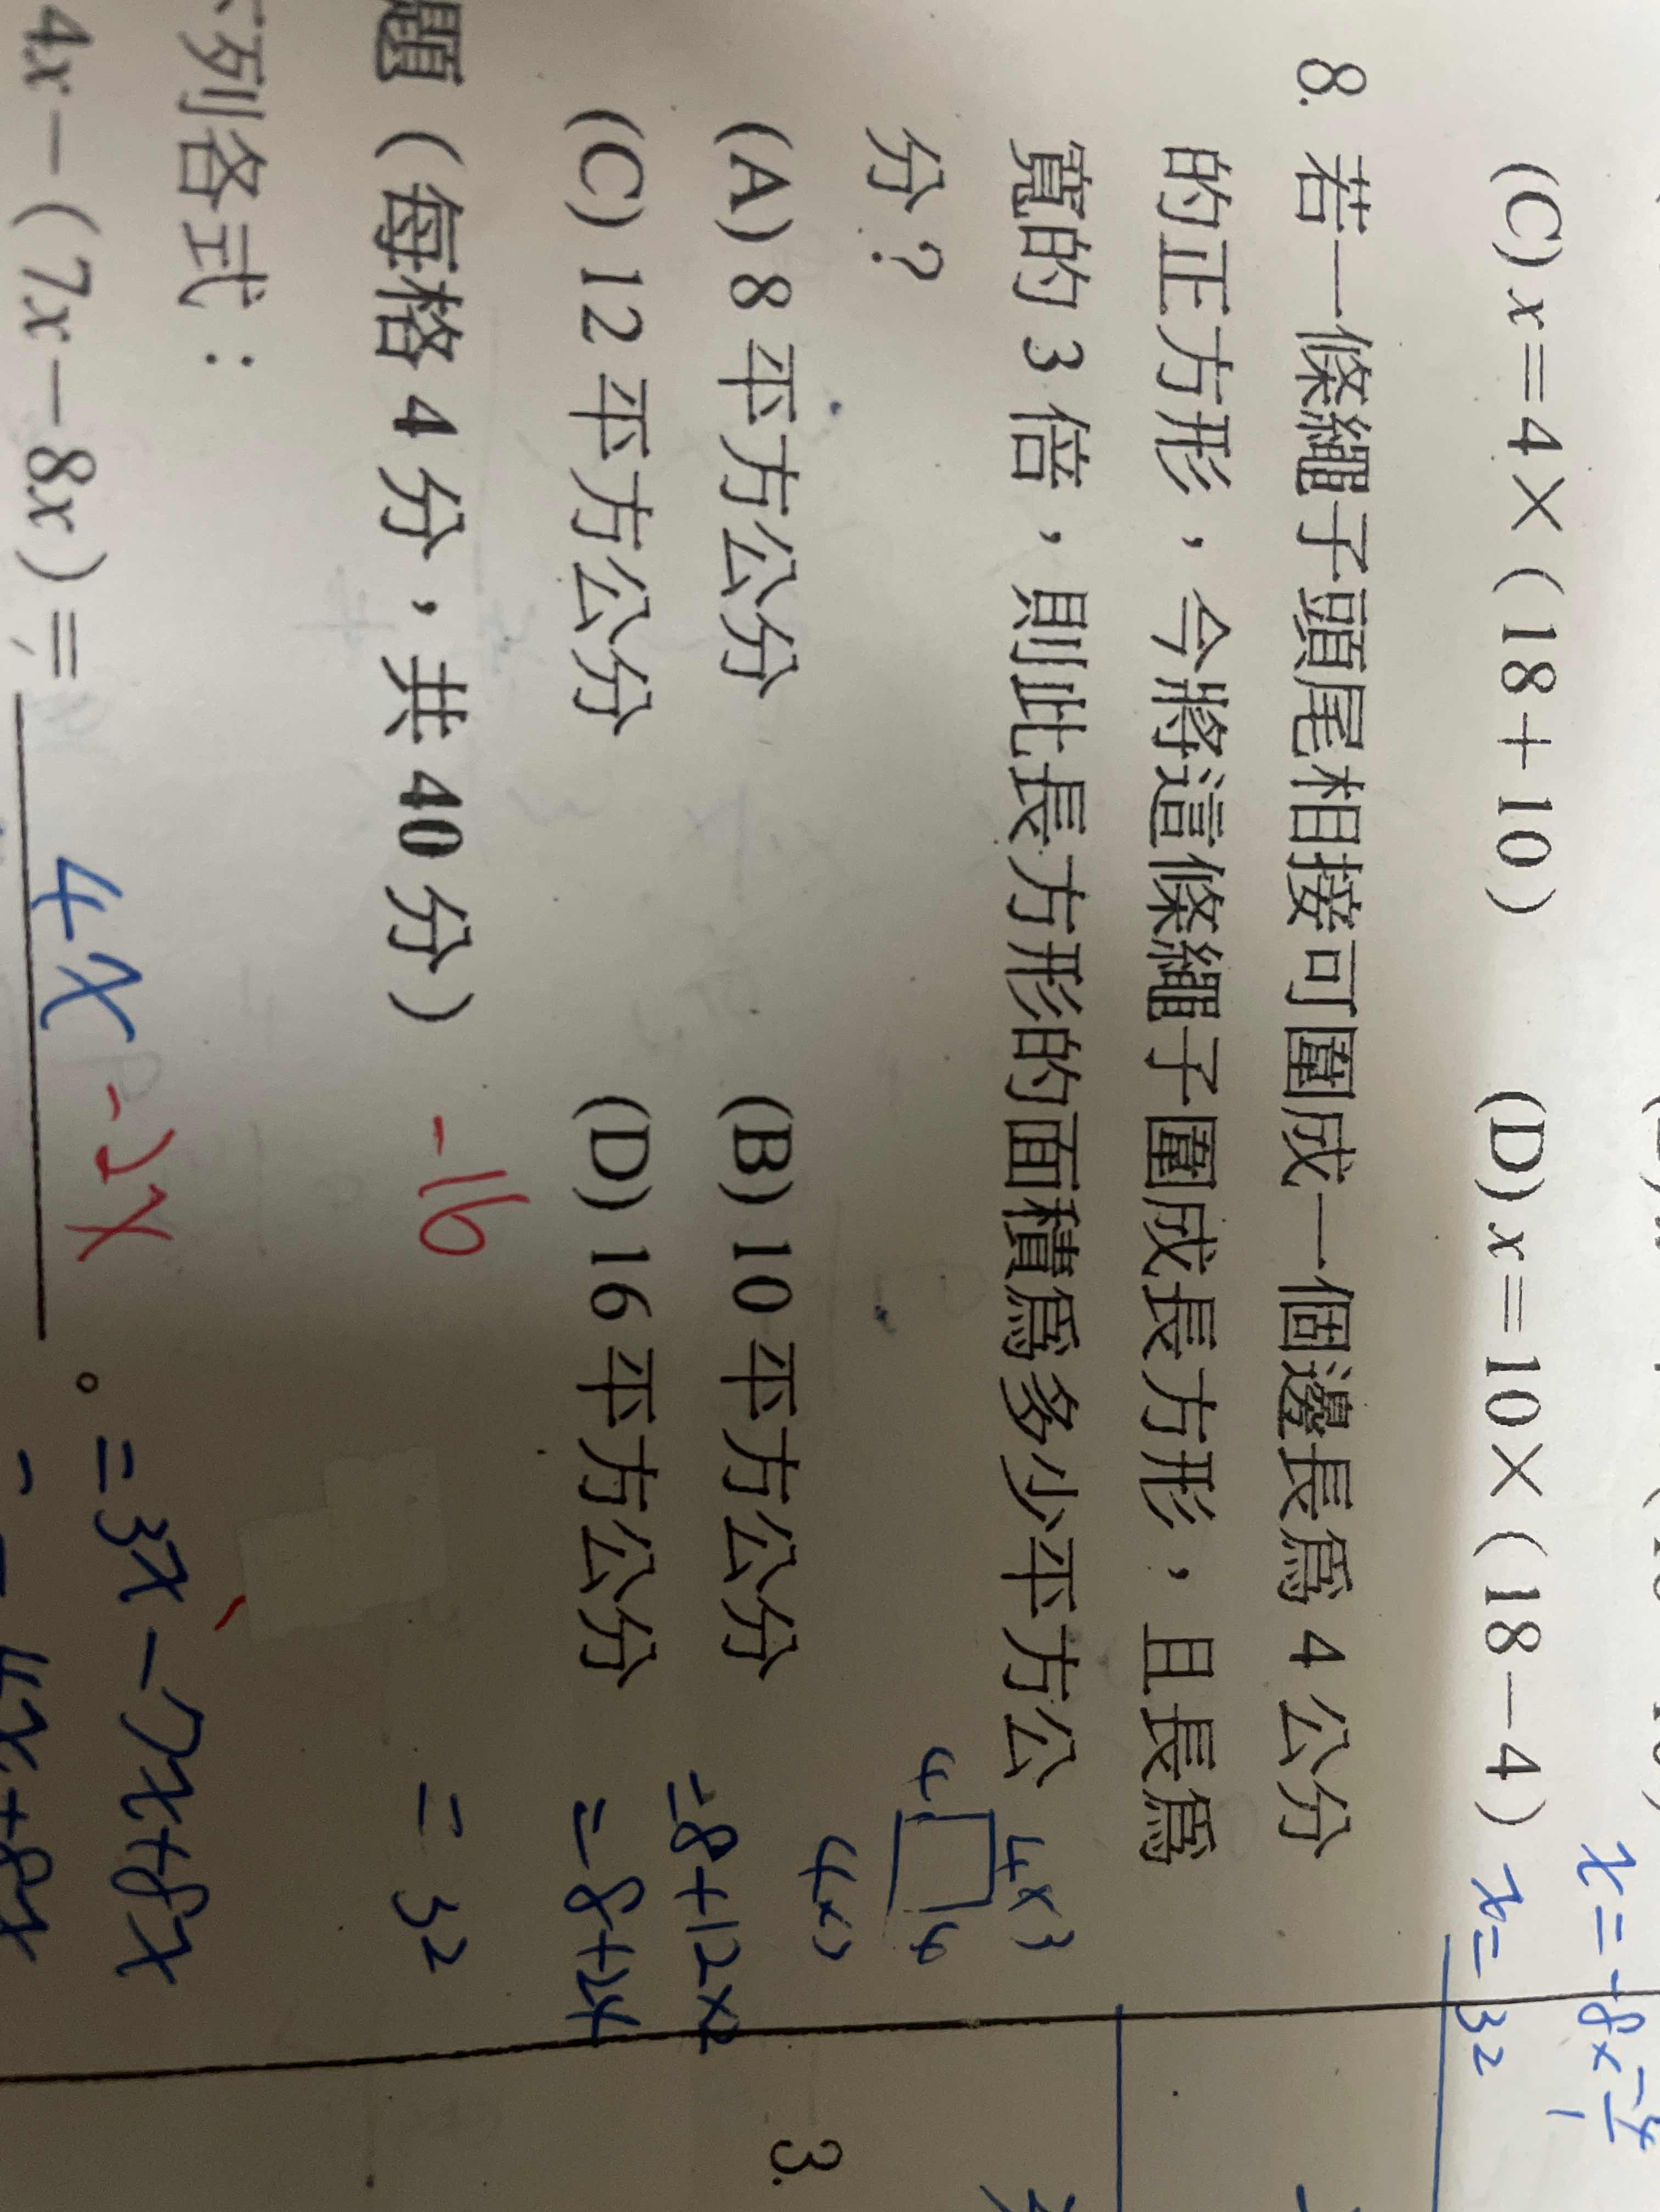 (C) x=4×(18+10)
(D) x=10×(18-4)
x=-8×-4/1
x=32
8. 若一條繩子頭尾相接可圍成一個邊長為 4 公分
的正方形，今將這條繩子圍成長方形，且長為
寬的 3 倍，則此長方形的面積為多少平方公
分？
4×3
4
4
4×3
(A) 8 平方公分
(B) 10 平方公分
=8+12×2
(C) 12 平方公分
(D) 16 平方公分
=8+24
題（每格 4 分，共 40 分）
-16
=32
列各式：
4x-(7x-8x)=
4x
-2x
。
=3x-7x+8x
4x+8x
3.